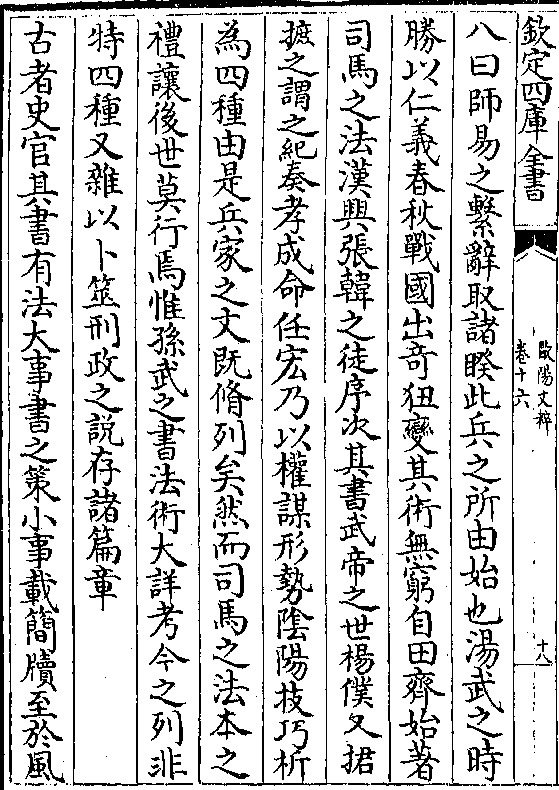 欽定四庫全書
歐陽文粹
卷十六
十八
八曰師易之繫辭取諸睽此兵之所由始也湯武之時
勝以仁義春秋戰國出竒狃變其術無窮自田齊始著
司馬之法漢興張韓之徒序次其書武帝之世楊僕又捃
摭之謂之紀奏孝成命任宏乃以權謀形勢隂陽技巧析
為四種由是兵家之文既脩列矣然而司馬之法本之
禮讓後世莫行焉惟孫武之書法術大詳考今之列非
特四種又雜以卜筮刑政之説存諸篇章
古者史官其書有法大事書之策小事載簡牘至於風